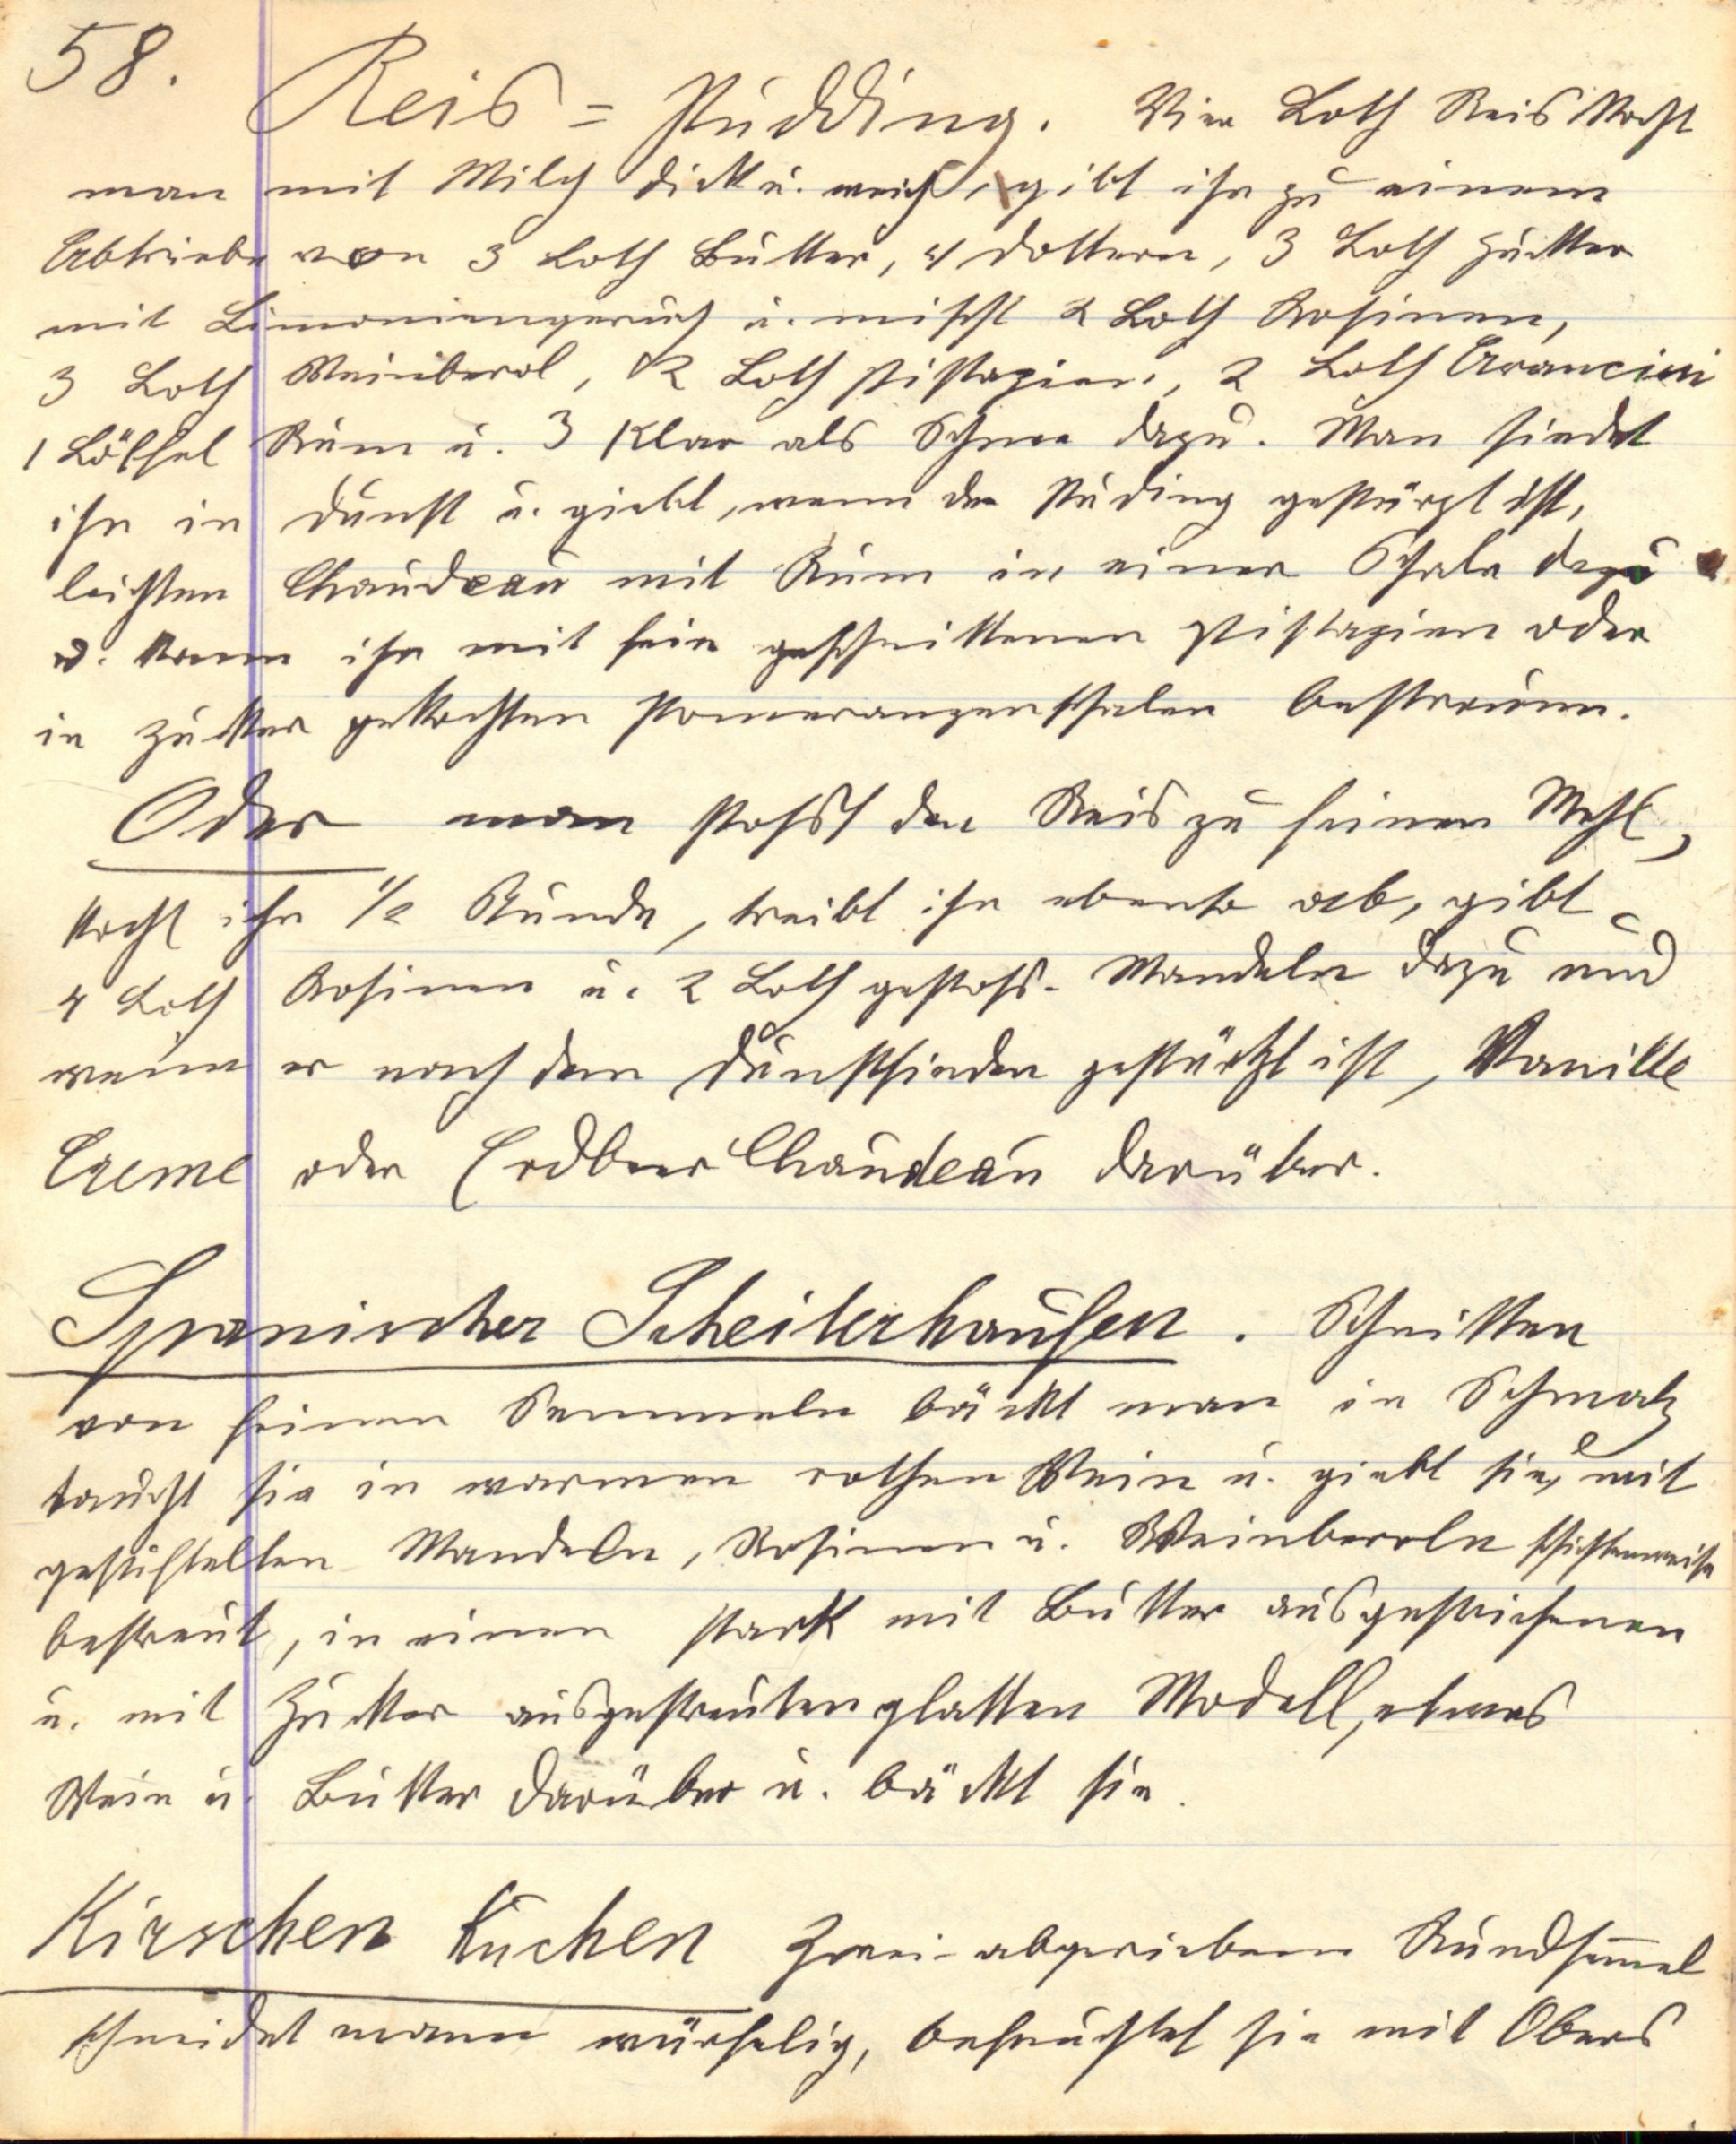 58.
Reis = Pudding. Vier Loth Reis kocht
man mit Milch dick u. weich, gibt ihn zu einem
Abtriebe von 3 Loth Butter, 4 Dottern, 3 Loth Zucker
mit Limoniengeruch u. mischt 2 Loth Rosinen,
3 Loth Weinberl, 2 Loth Pistazien, 2 Loth Arancini
1 Löffel Rum u. 3 Klar als Schnee dazu. Man siedet
ihn in Dunst u. giebt, wenn der Puding gestürzt ist,
leichten Chaudeau mit Rum in einer Schale dazu
o. kann ihn mit fein geschnittenen Pistazien oder
in Zucker gekochten Pomeranzenschalen bestreuen.
Oder man stosst den Reis zu feinen Mehl,
kocht ihn 1/2 Stunde, treibt ihn ebenso ab, gibt
4 Loth Rosinen u. 2 Loth gestoss. Mandeln dazu und
wenn er nach dem Dunstsieden gestürtzt ist, Vanille
Creme oder Erdbeer Chaudeau darüber.
Spanischer Scheiterhaufen. Schnitten
von feinen Semmeln bäckt man in Schmalz
taucht sie in warmen rothen Wein u. giebt sie, mit
gestiftelten Mandeln, Rosinen u. Weinberln schichtenweise
bestreut, in einen stark mit Butter ausgestrichenen
u. mit Zucker ausgestreuten glatten Modell, etwas
Wein u. Butter darüber u. bäckt sie.
Kirschen Kuchen Zwei abgeriebene Rundsem̄el
schneidet mann würfelig, befeuchtet sie mit Obers